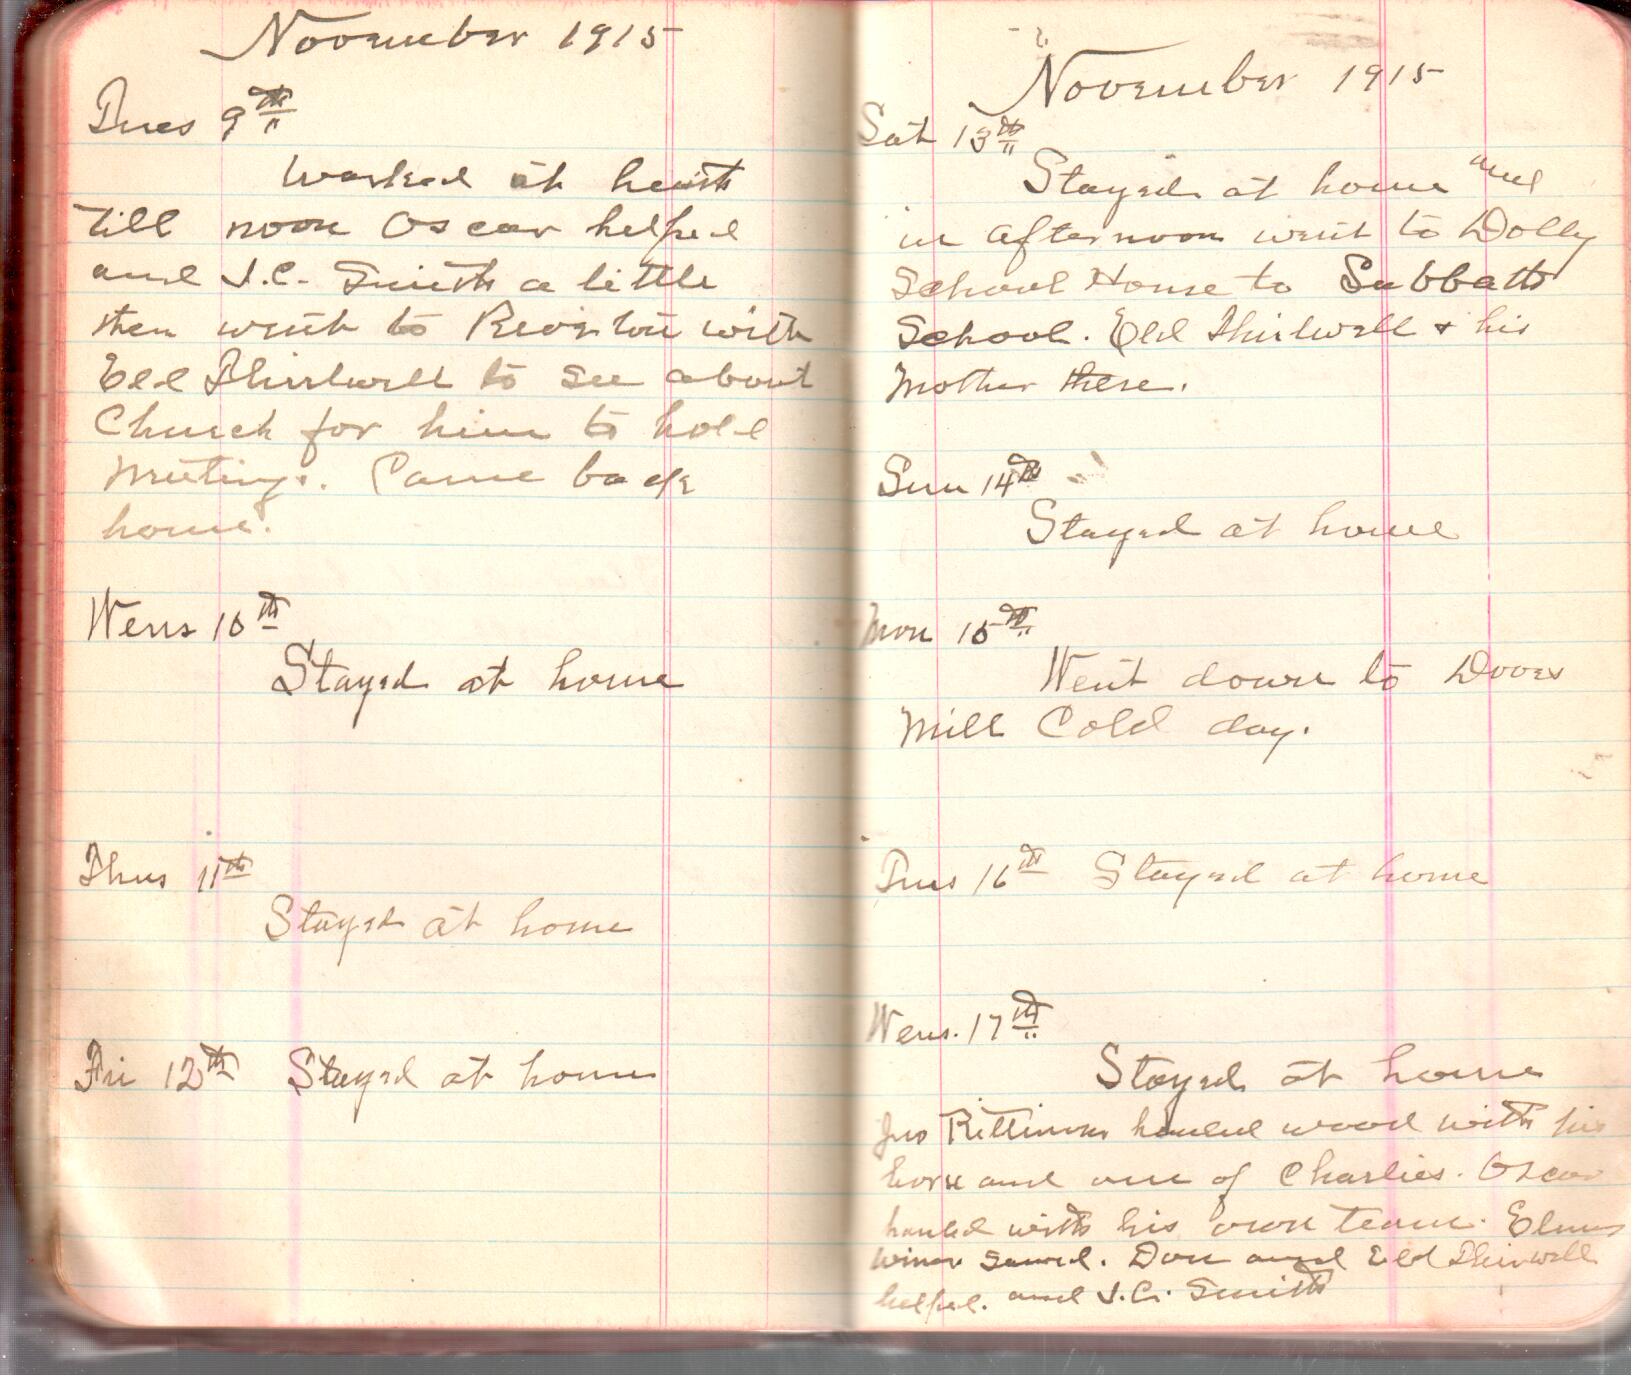 November 1915
Tues 9th
Worked at
till noon Oscar helped
and J.C. Smith a little
then went to with
Eld Thirlwell to see about
Church for him to hold
Meetings. Came back
home.
Wens 10th
Stayed at home
Thus 11th
Stayed at home
Fri 12th Stayed at home
November 1915
Sat 13th
Stayed at home and
in afternoon went to Dolly
School House to Sabbath
School. Eld Thirlwell & his
Mother there.
Sun 14th
Stayed at home
Mon 15th
Went down to Dover
Mill Cold day.
Tues 16th Stayed at home
Wens. 17th
Stayed at home
Jno hauled wood with his
horse and one of Charlies. Oscar
hauled with his own team. Elmer
sawed. Don and Eld Thirlwell
helped. and J.C. Smith